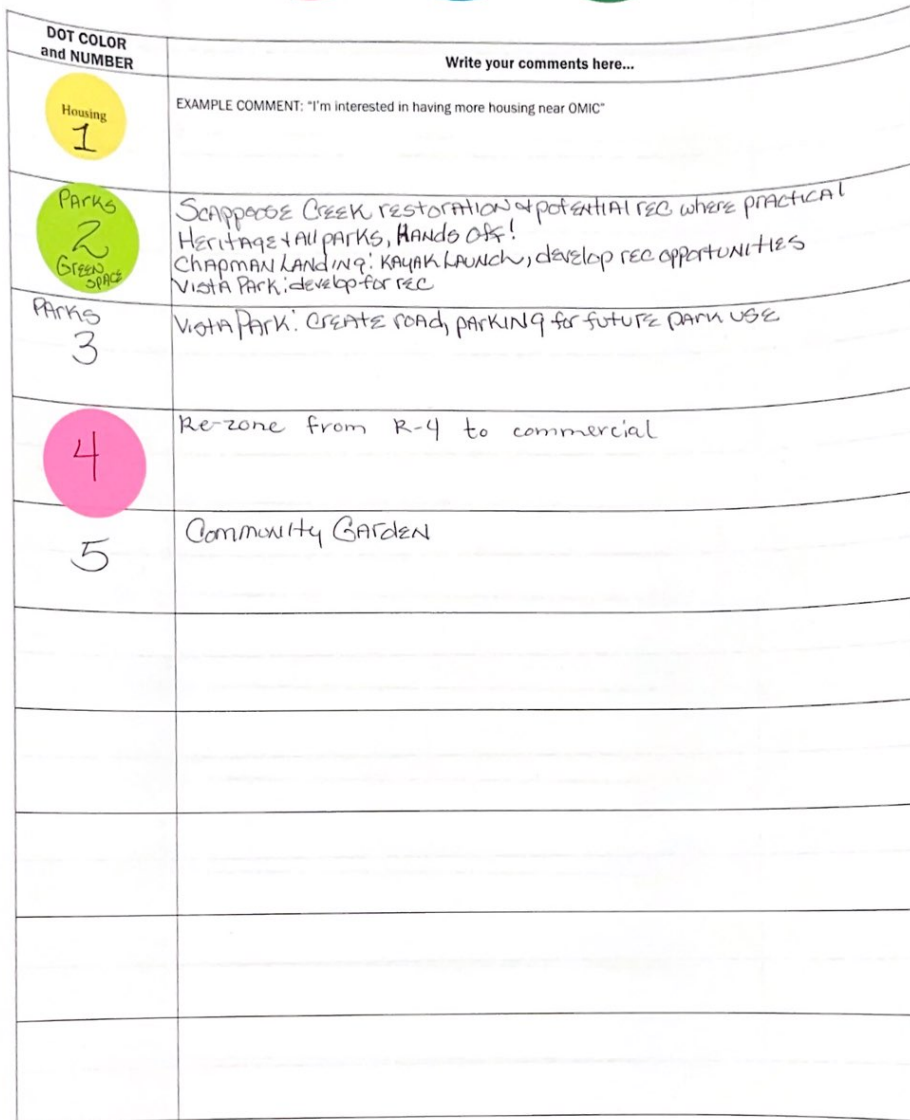 DOT COLOR
and NUMBER
Write your comments here...
Housing
1
EXAMPLE COMMENT: "I'm interested in having more housing near OMIC"
Parks
2
Green
Space
Scappoose Creek restoration & potential rec where practical
Heritage & All parks, Hands Off!
Chapman Landing: Kayak Launch, develop rec opportunities
Vista Park: develop for rec
Parks
3
Vista Park: Create road, parking for future park use
4
Re-zone from R-4 to commercial
5
Community Garden